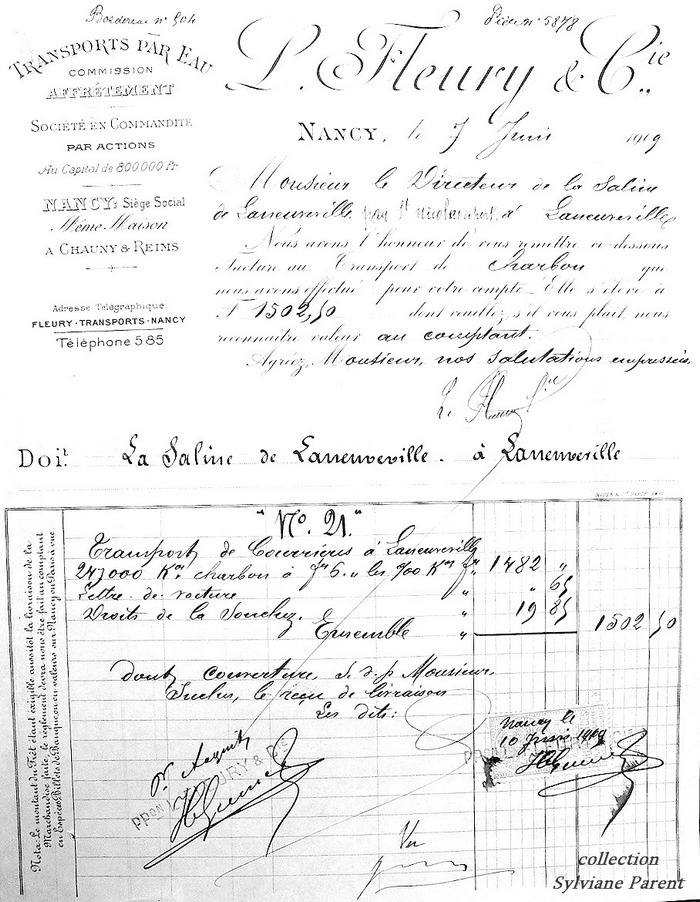 Bordereau n° 504
Pièce n° 5878
TRANSPORTS PAR EAU
COMMISSION
AFFRÈTEMENT
SOCIÉTÉ EN COMMANDITE
PAR ACTIONS
Au Capital de 800.000 Fr
NANCY: Siège Social
Même Maison
A CHAUNY & REIMS
Adresse Télégraphique
FLEURY-TRANSPORTS-NANCY
Téléphone 5.85
L. Fleury & Cie
NANCY, le 7 Juin 1909
Monsieur le Directeur de la Saline
de Laneuveville à Laneuveville
Nous avons l'honneur de vous remettre ci-dessous
facture au Transport de Charbon que
nous avons effectué pour votre compte. Elle s'élève à
F 1502,50 dont veuillez, s'il vous plaît, nous
reconnaître valeur au comptant.
Agréez, Monsieur, nos salutations empressées.
L. Fleury Cie
Doit La Saline de Laneuveville. à Laneuveville
Nota: Le montant du Frêt étant exigible aussitôt la livraison de la
Marchandise faite, le règlement devra nous être fait au comptant
en Espèces Billets de Banque ou en valeurs sur Nancy ou Paris à vue
"N° 21."
Transport de Courrières à Laneuveville
247000 Kos charbon à Frs 6. " les %00 Kos Frs 1482 "
Lettre de voiture " " 65
Droits de la Souchez. " 19 85
Ensemble " 1502 50
dont couverture s. v. p. Monsieur,
Inclus, le reçu de livraison
Les dits:
Pr Acquit
PPON L. FLEURY & CIE
Nancy le
10 Juin 1909
Vu
collection
Sylviane Parent